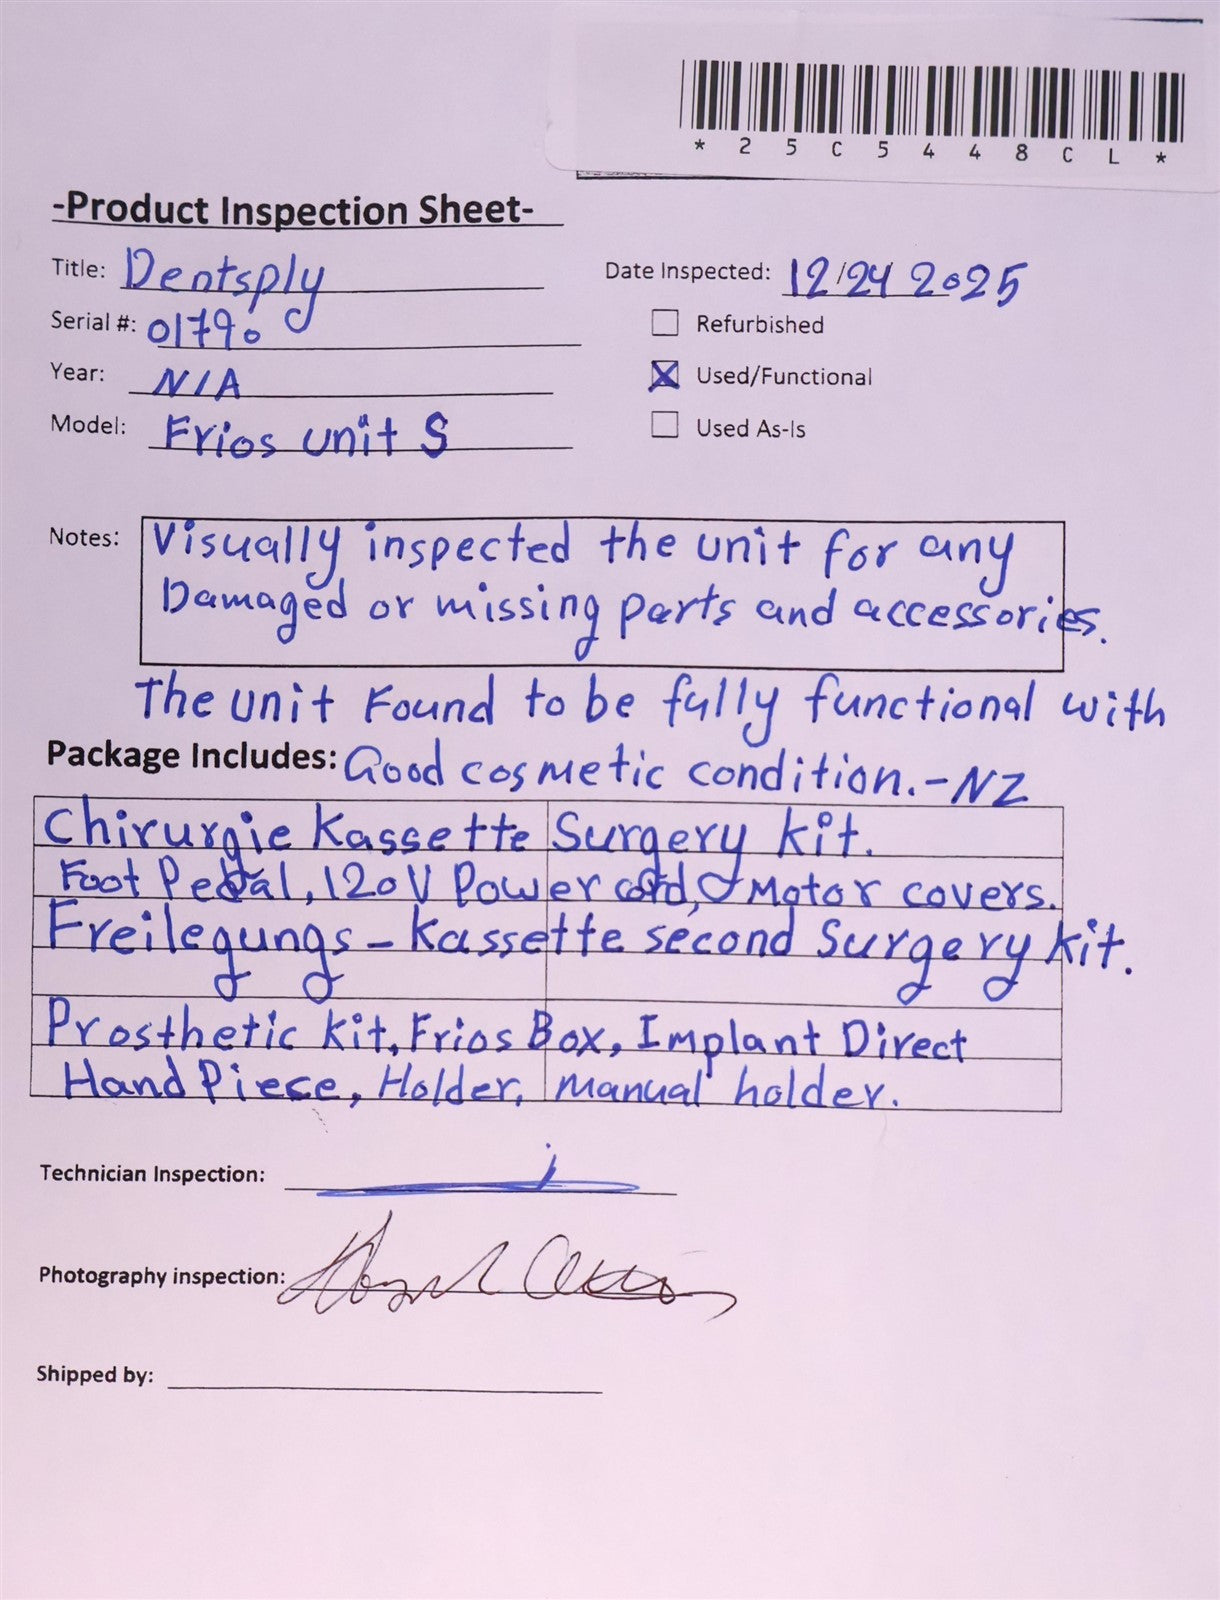 * 2 5 C 5 4 4 8 C L *
-Product Inspection Sheet-
Title: Dentsply
Date Inspected: 12/24 2025
Serial #: 01790
Refurbished
Year: N/A
Used/Functional
Model: Frios unit S
Used As-Is
Notes: Visually inspected the unit for any
Damaged or missing parts and accessories.
The unit Found to be fully functional with
Package Includes: Good cosmetic condition.-NZ
Chirurgie Kassette Surgery kit.
Foot Pedal, 120V Power cord, Motor covers.
Freilegungs - Kassette second Surgery kit.
Prosthetic kit, Frios Box, Implant Direct
Hand Piece, Holder, manual holder.
Technician Inspection:
Photography inspection:
Shipped by: